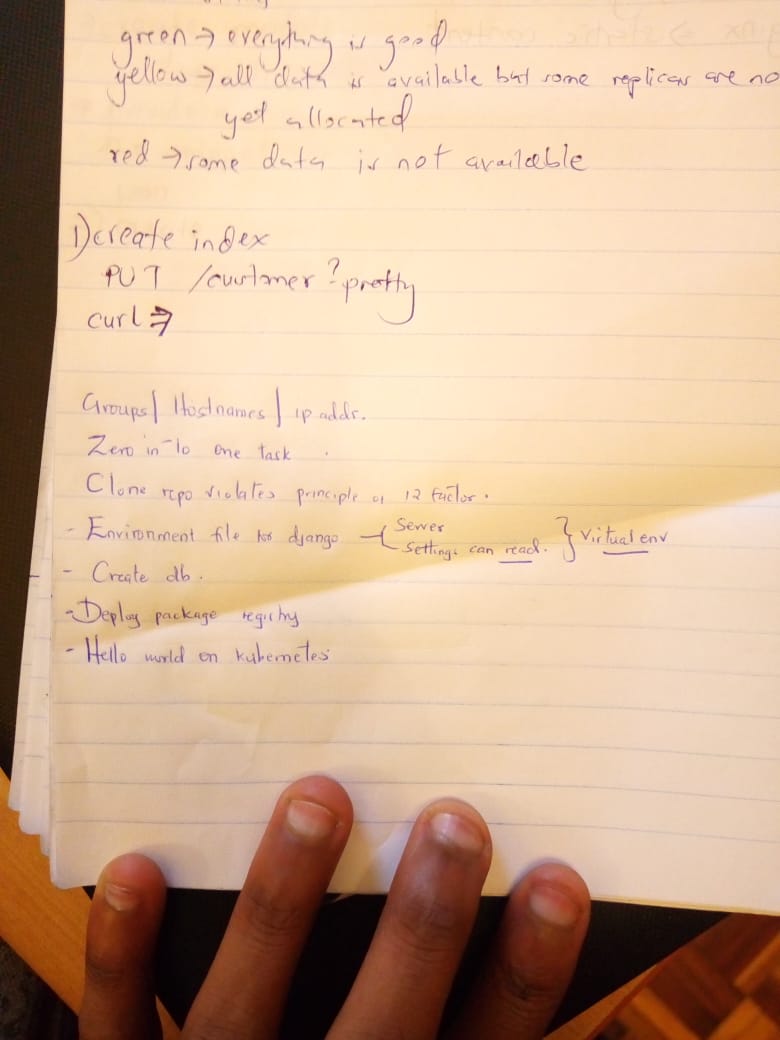 green → everything is good
yellow → all data is available but some replicas are no
yet allocated
red → some data is not available
1) create index
PUT /customer?pretty
curl ⇒
Groups | Hostnames | ip addr.
Zero in to one task .
Clone repo violates principle of 12 factor.
- Environment file for django { Server
Settings can read. } Virtual env
- Create db.
- Deploy package registry
- Hello world on kubernetes